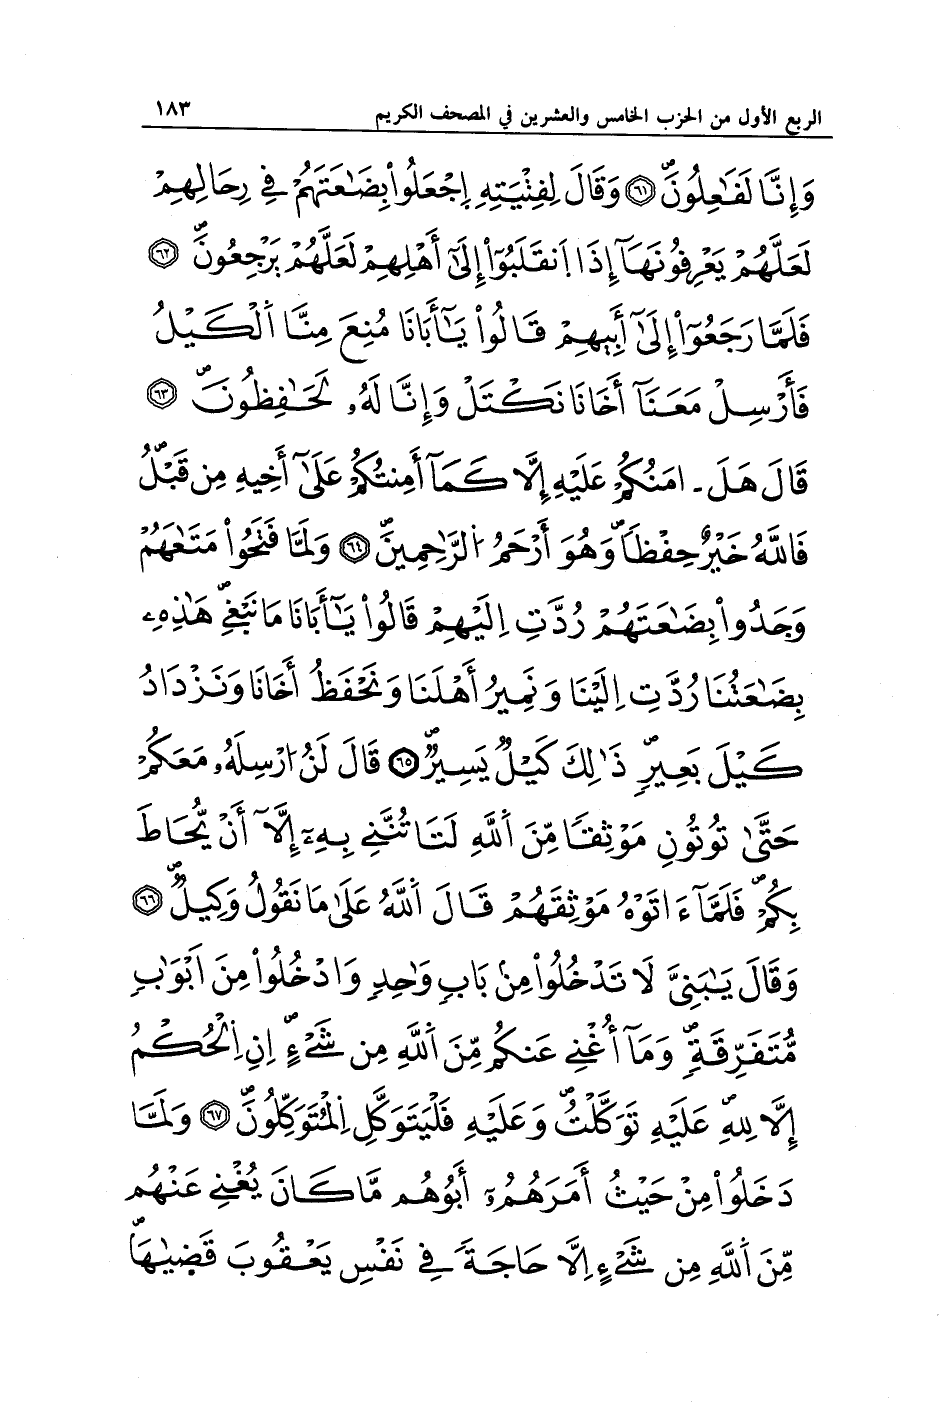 الربع الأول من الحزب الخامس والعشرين في المصحف الكريم ١٨٣
وَإِنَّا لَفَٰعِلُونَۖ ٦١ وَقَالَ لِفِتْيَتِهِ اِجْعَلُواْ بِضَٰعَتَهُمْ فِي رِحَالِهِمْ
لَعَلَّهُمْ يَعْرِفُونَهَآ إِذَا اَنقَلَبُوٓاْ إِلَىٰٓ أَهْلِهِمْ لَعَلَّهُمْ يَرْجِعُونَۖ ٦٢
فَلَمَّا رَجَعُوٓاْ إِلَىٰٓ أَبِيهِمْ قَالُواْ يَٰٓأَبَانَا مُنِعَ مِنَّا اَلْكَيْلُ
فَأَرْسِلْ مَعَنَآ أَخَانَا نَكْتَلْ وَإِنَّا لَهُۥ لَحَٰفِظُونَۖ ٦٣
قَالَ هَلَ ـ امَنُكُمْ عَلَيْهِ إِلَّا كَمَآ أَمِنتُكُمْ عَلَىٰٓ أَخِيهِ مِن قَبْلُۖ
فَاللَّهُ خَيْرٌ حِفْظاًۖ وَهُوَ أَرْحَمُ اُلرَّٰحِمِينَۖ ٦٤ وَلَمَّا فَتَحُواْ مَتَٰعَهُمْ
وَجَدُواْ بِضَٰعَتَهُمْ رُدَّتِ اِلَيْهِمْ قَالُواْ يَٰٓأَبَانَا مَا نَبْغِيۖ هَٰذِهِۦ
بِضَٰعَتُنَا رُدَّتِ اِلَيْنَا وَنَمِيرُ أَهْلَنَا وَنَحْفَظُ أَخَانَا وَنَزْدَادُ
كَيْلَ بَعِيرٍۖ ذَٰلِكَ كَيْلٌ يَسِيرٌۖ ٦٥ قَالَ لَنُ ا۟رْسِلَهُۥ مَعَكُمْ
حَتَّىٰ تُوتُونِ مَوْثِقاً مِّنَ اَللَّهِ لَتَاتُنَّنِي بِهِۦٓ إِلَّآ أَنْ يُّحَاطَ
بِكُمْۖ فَلَمَّآ ءَاتَوْهُ مَوْثِقَهُمْ قَالَ اَللَّهُ عَلَىٰ مَا نَقُولُ وَكِيلٌۖ ٦٦
وَقَالَ يَٰبَنِيَّ لَا تَدْخُلُواْ مِنۢ بَابٍ وَٰحِدٍ وَادْخُلُواْ مِنَ اَبْوَٰبٍ
مُّتَفَرِّقَةٍۖ وَمَآ أُغْنِي عَنكُم مِّنَ اَللَّهِ مِن شَيْءٍۖ اِنِ اِلْحُكْمُ
إِلَّا لِلهِۖ عَلَيْهِ تَوَكَّلْتُۖ وَعَلَيْهِ فَلْيَتَوَكَّلِ اِلْمُتَوَكِّلُونَۖ ٦٧ وَلَمَّا
دَخَلُواْ مِنْ حَيْثُ أَمَرَهُمُۥٓ أَبُوهُم مَّا كَانَ يُغْنِي عَنْهُم
مِّنَ اَللَّهِ مِن شَيْءٍ اِلَّا حَاجَةً فِي نَفْسِ يَعْقُوبَ قَضَيٰهَاۖ